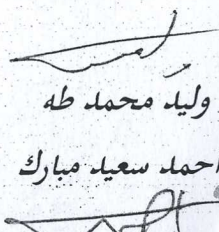 وليد محمد طه
احمد سعيد مبارك